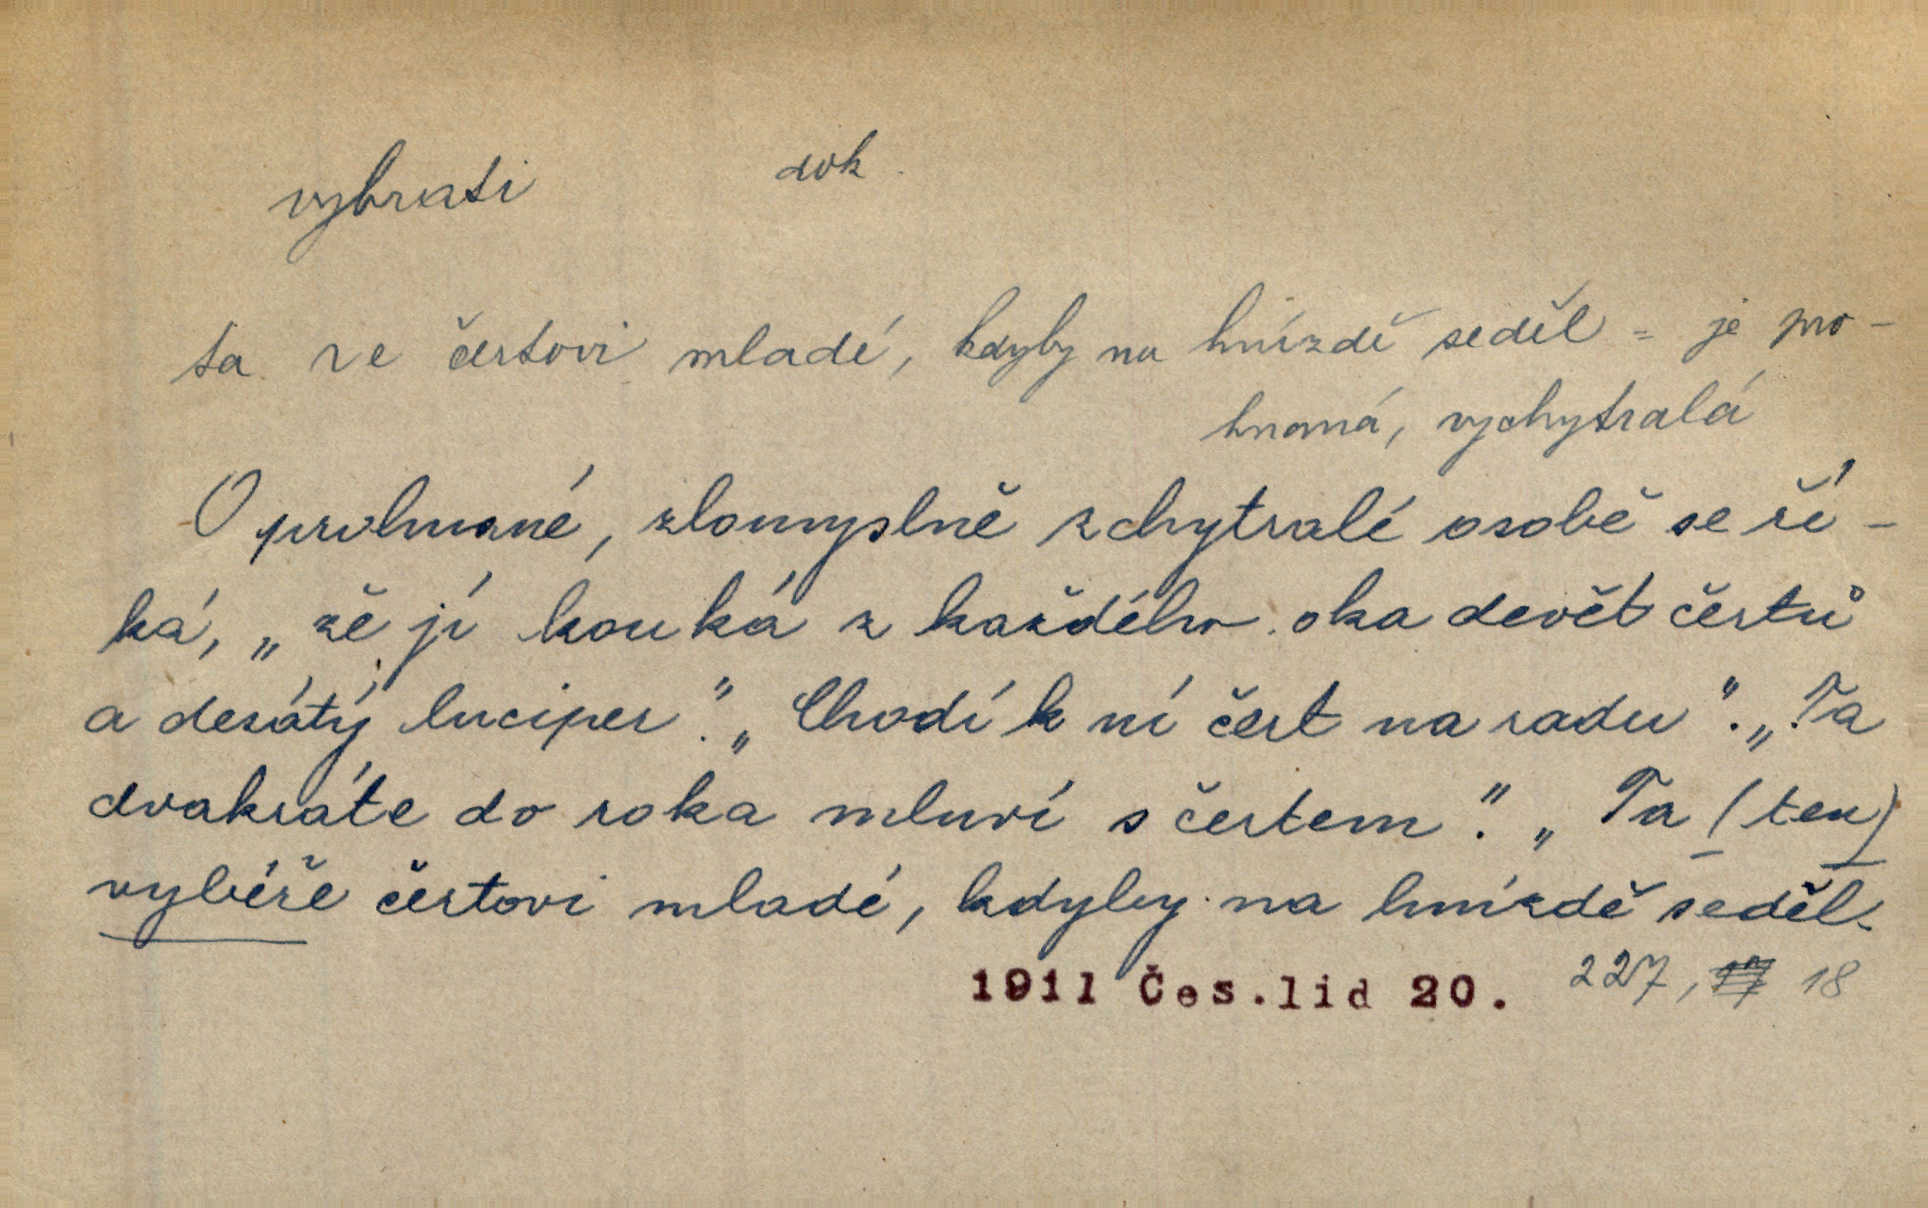 vybrati dok.
ta ve čertovi mladé, kdyby na hnízdě seděl = je pro-
hnaná, vychytralá
O prohnané, zlomyslně zchytralé osobě se ří-
ká, „že jí kouká z každého oka devět čertů
a desátý luciper." „Chodí k ní čert na radu". „Ta
dvakráte do roka mluví s čertem". „Ta (ten)
vybéře čertovi mladé, kdyby na hnízdě seděl.
1911 Čes.lid 20. 227, 18